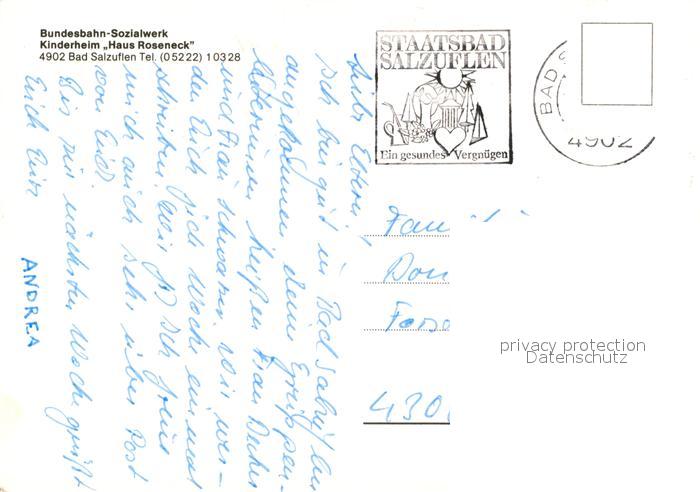 Bundesbahn-Sozialwerk
Kinderheim „Haus Roseneck"
4902 Bad Salzuflen Tel. (05222) 10328
STAATSBAD
SALZUFLEN
Ein gesundes Vergnügen
BAD S
4902
Liebe Eltern,
ich bin gut in Bad Salzuflen
angekommen. Meine Gruppen-
leiterinnen heißen Frau Decker
und Frau Schwarz. Wir wer-
den Euch jede Woche einmal
schreiben.
mich auch sehr über Post
von Euch.
Bis zur nächsten Woche grüßt
Euch Eure
ANDREA
Fam
Don
430
privacy protection
Datenschutz